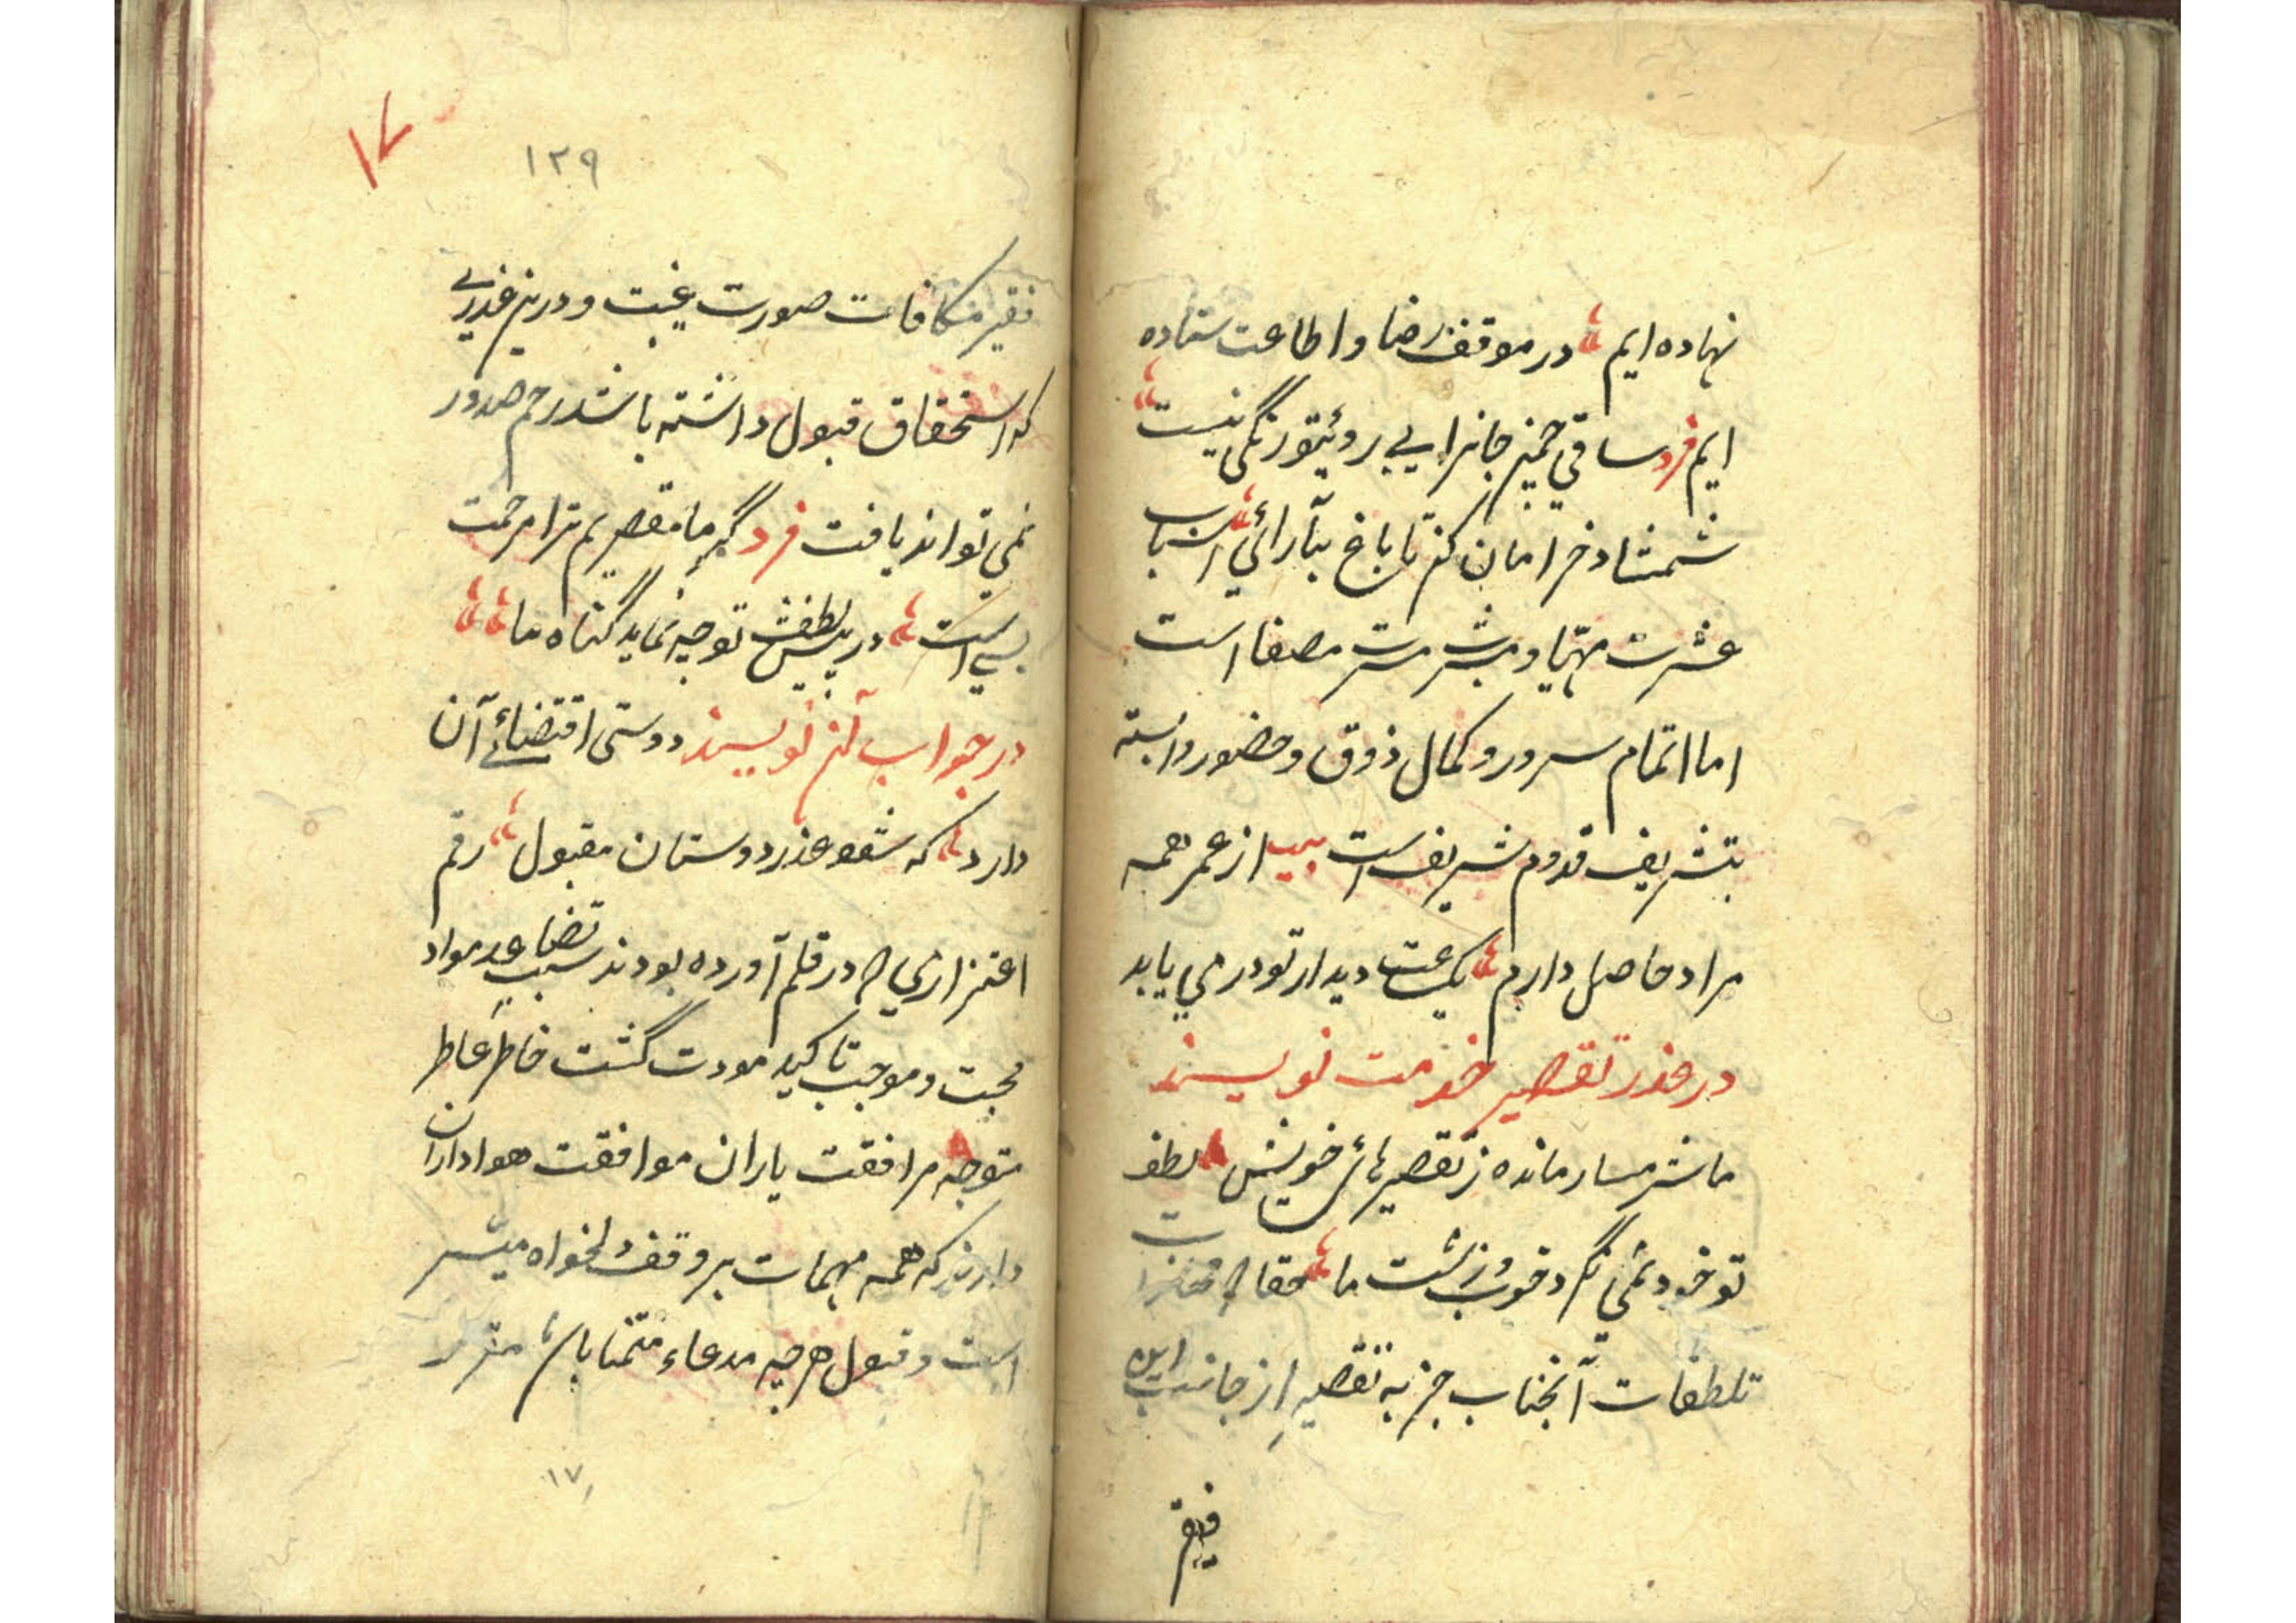 نهاده ایم در موقف رضا و اطاعت ستاده
ایم فرد ساقی چمنیر جانرا بی بروئیتو رنگی نیست
شمشاد خرامان کن تا باغ بیآرائی اسباب
عشرت مهیا و مشرب مسرت مصفا است
اما اتمام سرور و کمال ذوق و حضور وابسته
بتشریف قدوم شریف است بیت از عمر همه
مراد حاصل دارم یکساعت دیدار تو در می یابد
در عذر تقصیر خدمت نویسند
ما شرمسار مانده ز تقصیرهائ خویش لطف
تو خود نمی نگرد خوب و زشت ما حقا که
تلطفات آنجناب جز به تقصیر از جانب این
فقیر
۱۲۹
۱۷
فقیر مکافات صورت غیبت و درین عذری
که استحقاق قبول داشته باشد رحم صدور
نمی تواند یافت فرد گر ما مقصریم ترا مرحمت
بسی است در پیش لطفش توجیه نماید گناه ما
در جواب آن نویسند دوستی اقتضائے آن
دارد که شفو عذر دوستان مقبول رقم
اعتزازی که در قلم آورده بودند سبب تضاعد مواد
محبت و موجب تاکید مودت گشت خاطر عاطر
متوجه مرافقت یاران موافقت هواداران
دارند که همه مهمات بر وقف دلخواه میسر
است و قبول هرچه مدعاء متمنا باشد
۱۷